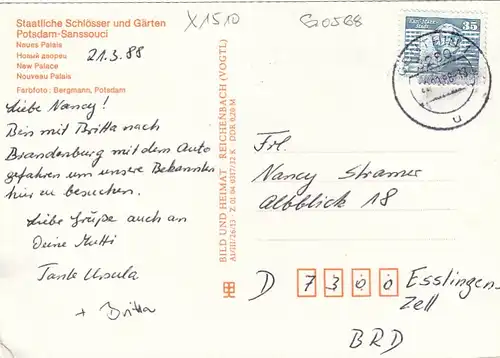 Staatliche Schlösser und Gärten
Potsdam-Sanssouci
Neues Palais
Новый дворец
New Palace
Nouveau Palais
Farbfoto: Bergmann, Potsdam
21.3.88
X1510
G0568
Liebe Nancy!
Bin mit Britta nach
Brandenburg mit dem Auto
gefahren um unsere Bekannten
hier zu besuchen.
Liebe Grüße auch an
Deine Mutti
Tante Ursula
+ Britta
BILD UND HEIMAT REICHENBACH (VOGTL)
35
Frl.
Nancy Stramer
Albblick 18
D 7300 Esslingen
Zell
BRD